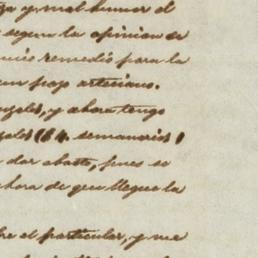 y mal humor el
segun la opinion de
remedio para la
un pozo artesiano.
y ahora tengo
(64. semanarios)
dar abasto, pues se
ahora de que llegue la
el particular, y me